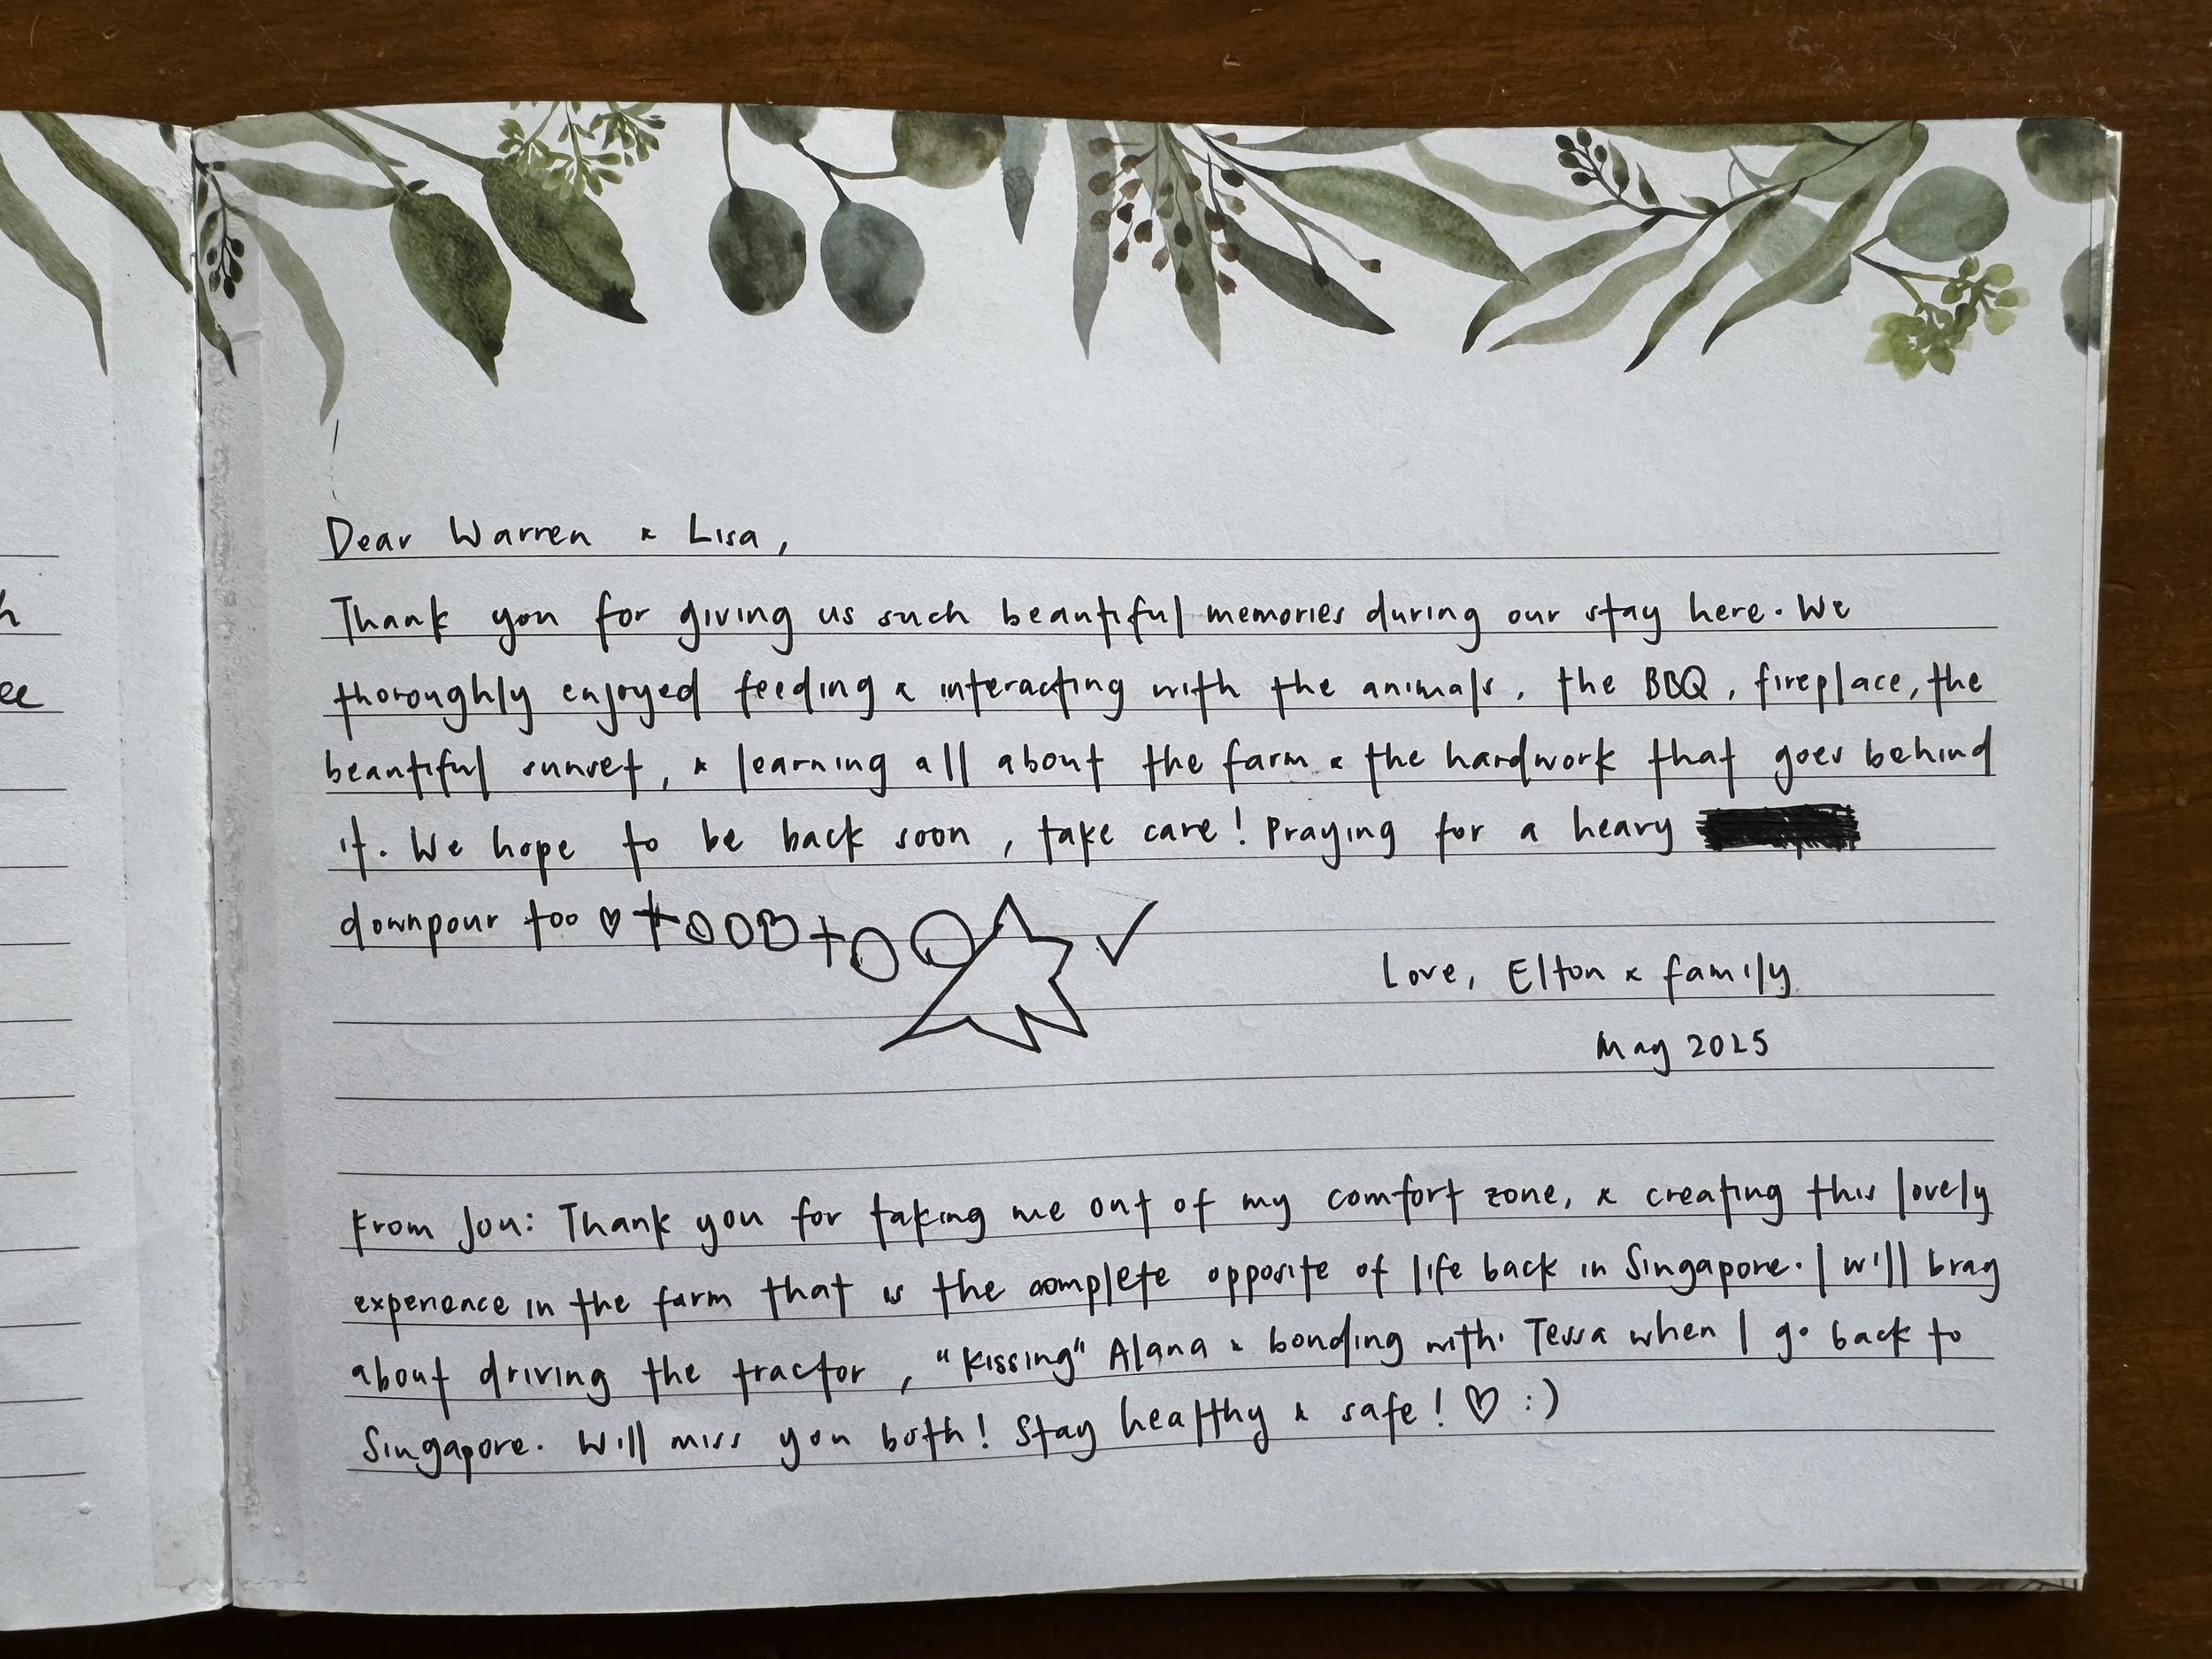 h
ee
Dear Warren & Lisa,
Thank you for giving us such beautiful memories during our stay here. We
thoroughly enjoyed feeding & interacting with the animals, the BBQ, fireplace, the
beautiful sunset, & learning all about the farm & the hardwork that goes behind
it. We hope to be back soon, take care! Praying for a heavy
downpour too ♡
Love, Elton & family
May 2025
From Jou: Thank you for taking me out of my comfort zone, & creating this lovely
experience in the farm that is the complete opposite of life back in Singapore. I will brag
about driving the tractor, "kissing" Alana & bonding with Tessa when I go back to
Singapore. Will miss you both! Stay healthy & safe! ♡ :)